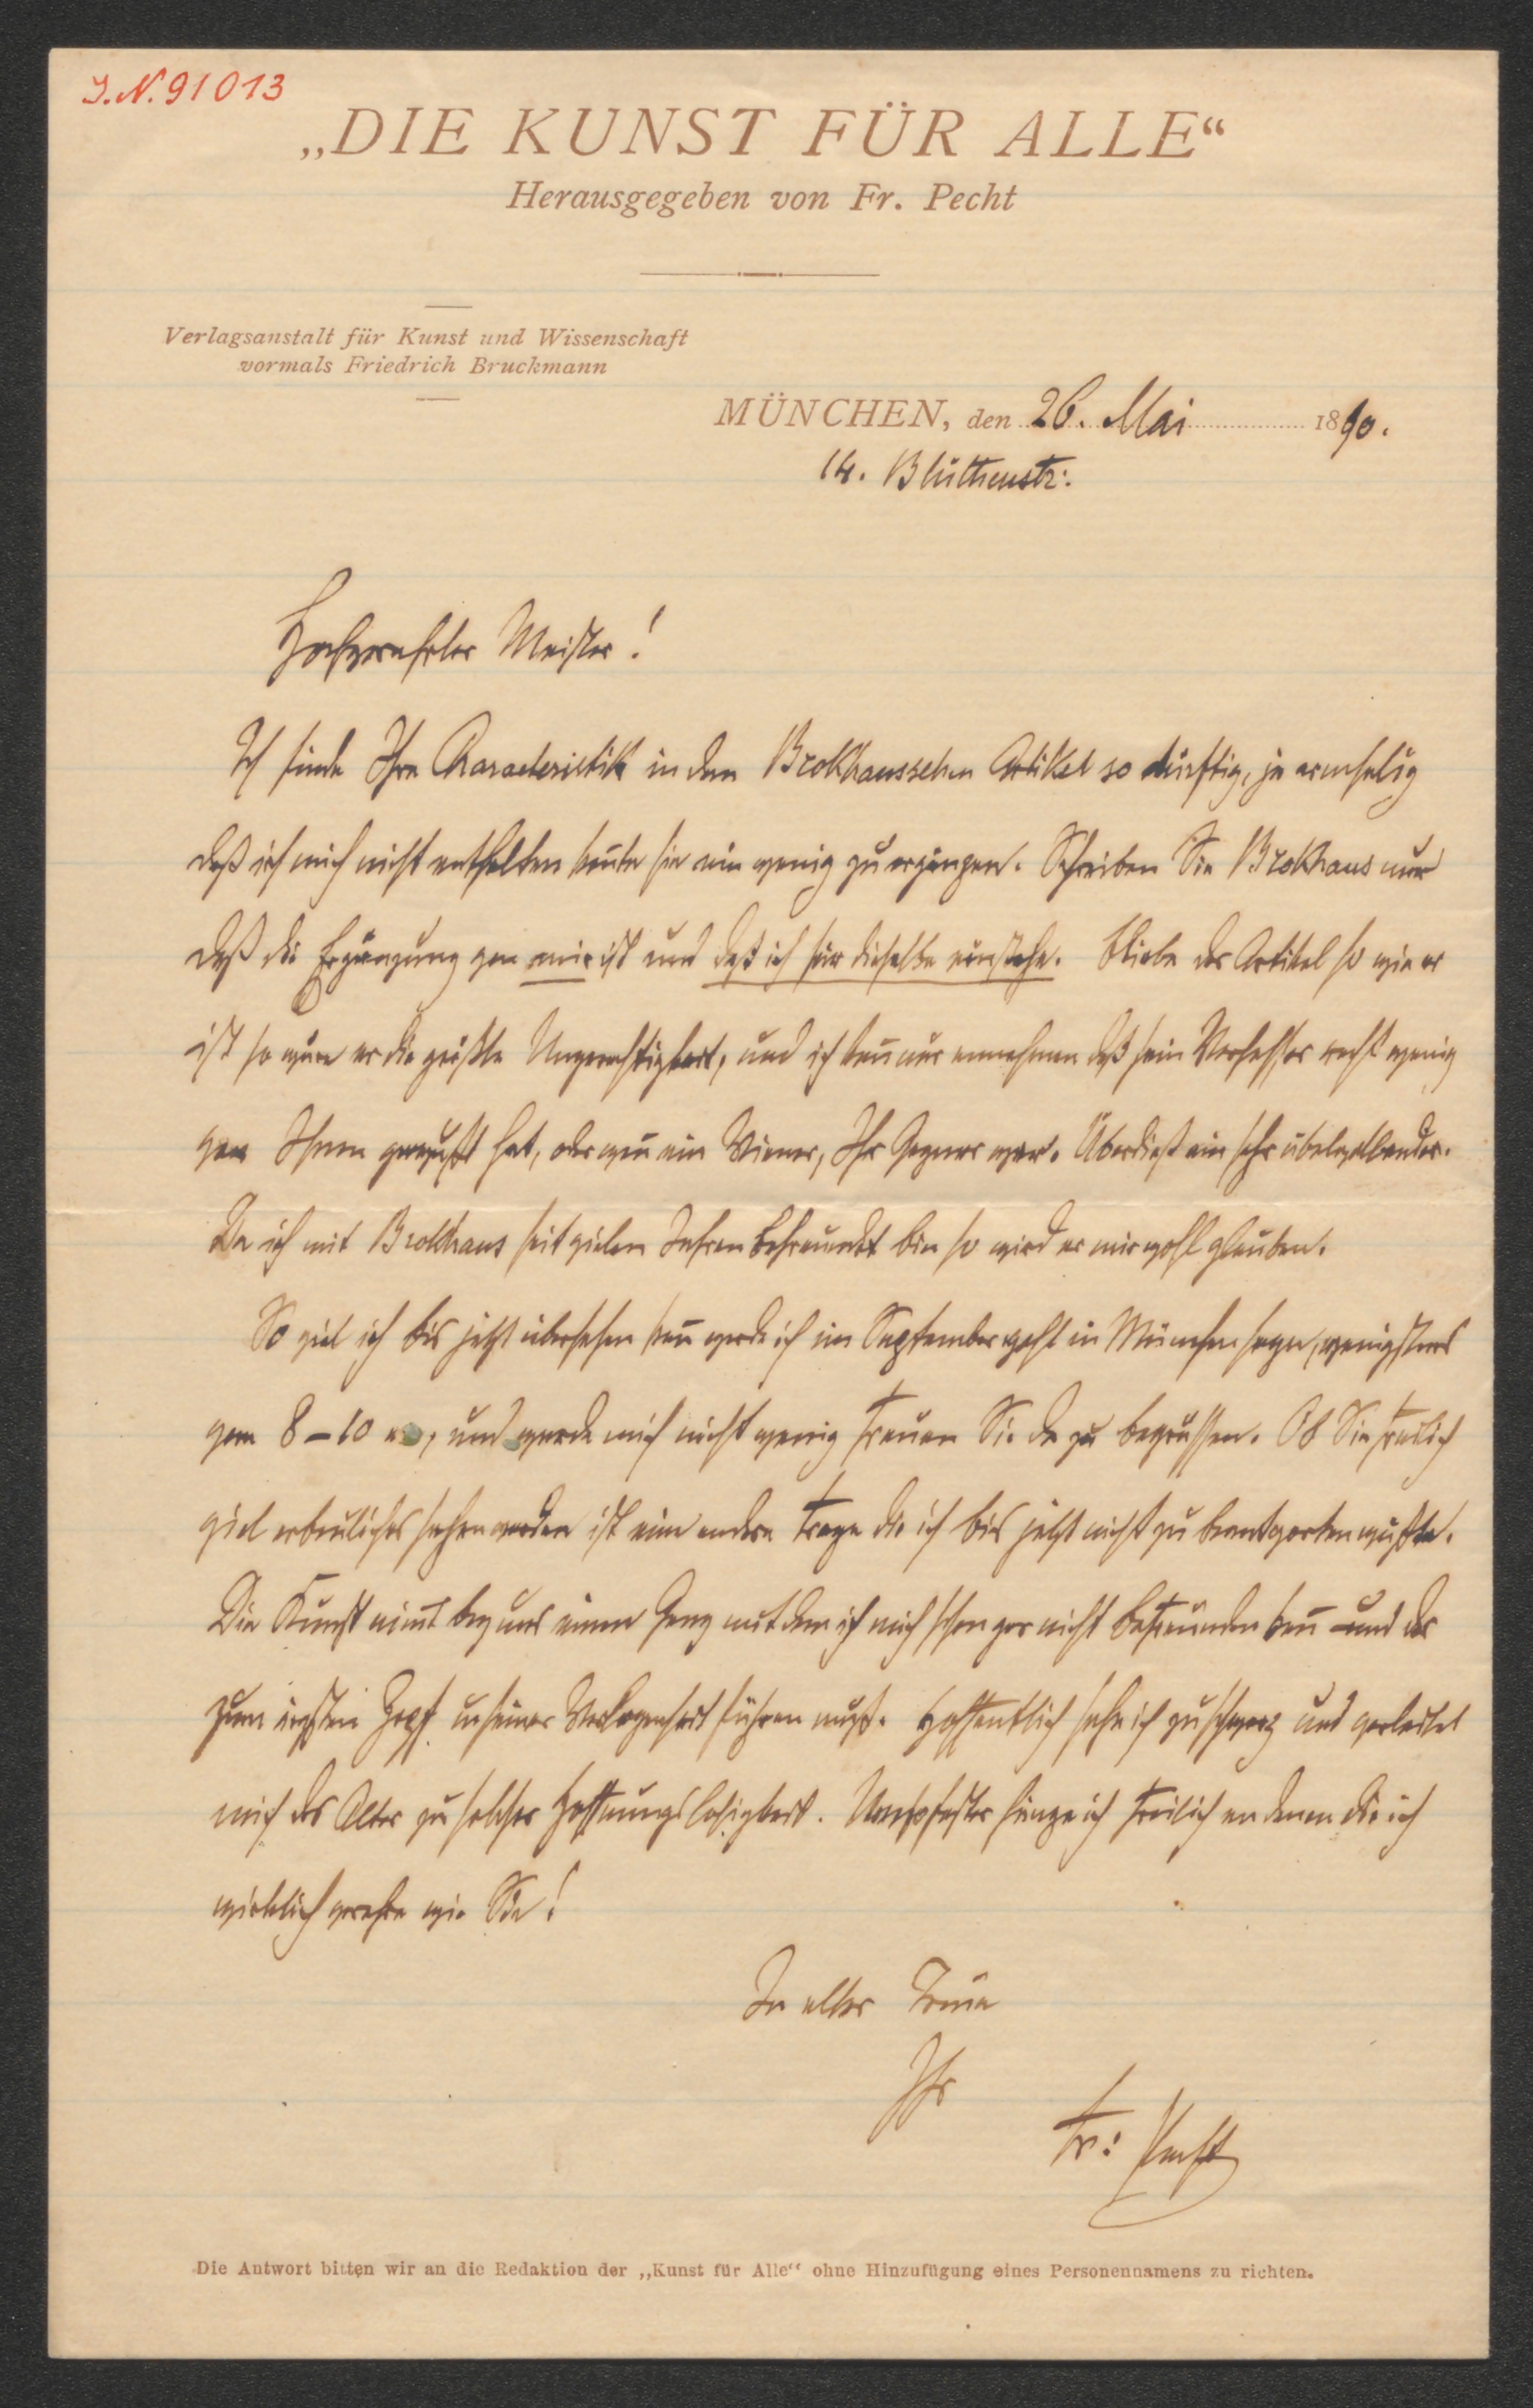 I.N. 91013
„DIE KUNST FÜR ALLE“
Herausgegeben von Fr. Pecht
Verlagsanstalt für Kunst und Wissenschaft
vormals Friedrich Bruckmann
MÜNCHEN, den 26. Mai 1890.
14. Blüthenstr:
Hochverehrter Meister!
Ich finde Ihre Characteristik in dem Brokhausschen Artikel so dürftig, ja armselig
daß ich mich nicht enthalten konnte sie ein wenig zu ergänzen. Schreiben Sie Brokhaus nur
daß die Ergänzung von mir ist und daß ich für dieselbe einstehe. Bliebe der Artikel so wie er
ist so wäre er die größte Ungerechtigkeit, und ich kañ nur annehmen daß sein Verfasser recht wenig
von Ihnen gewußt hat, oder weñ ein Wiener, Ihr Gegner war. Überdieß ein sehr übelwollender.
Da ich mit Brokhaus seit vielen Jahren befreundet bin so wird er mir wohl glauben.
So viel ich bis jetzt übersehen kañ werde ich im September wohl in München seyn, wenigstens
vom 8–10 und werde mich nicht wenig freuen Sie da zu begrüssen. Ob Sie freilich
viel erbauliches sehen werden ist eine andere Frage die ich bis jetzt nicht zu beantworten wüßte.
Die Kunst nimt bey uns einen Gang mit dem ich mich schon gar nicht befreunden kañ – und der
zum ärgsten Zopf führen muß. Hoffentlich sehe ich zu schwarz und verleitet
mich das Alter zu solcher Hoffnungslosigkeit. Umso fester hänge ich freilich an denen die ich
wirklich verehre wie Sie!
In alter Treue
Ihr
Fr: Pecht
Die Antwort bitten wir an die Redaktion der „Kunst für Alle“ ohne Hinzufügung eines Personennamens zu richten.